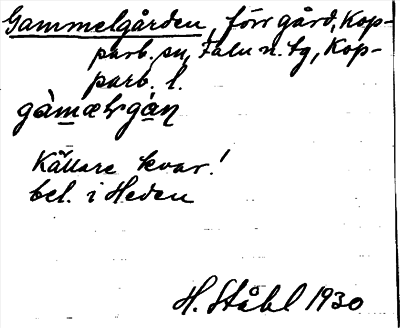 Gammelgården, förr gård, Kop-
parb. sn, Falu n. tg, Kop-
parb. l.
gàmælgàṇ
Källare kvar!
bel. i Heden
H. Ståhl 1930